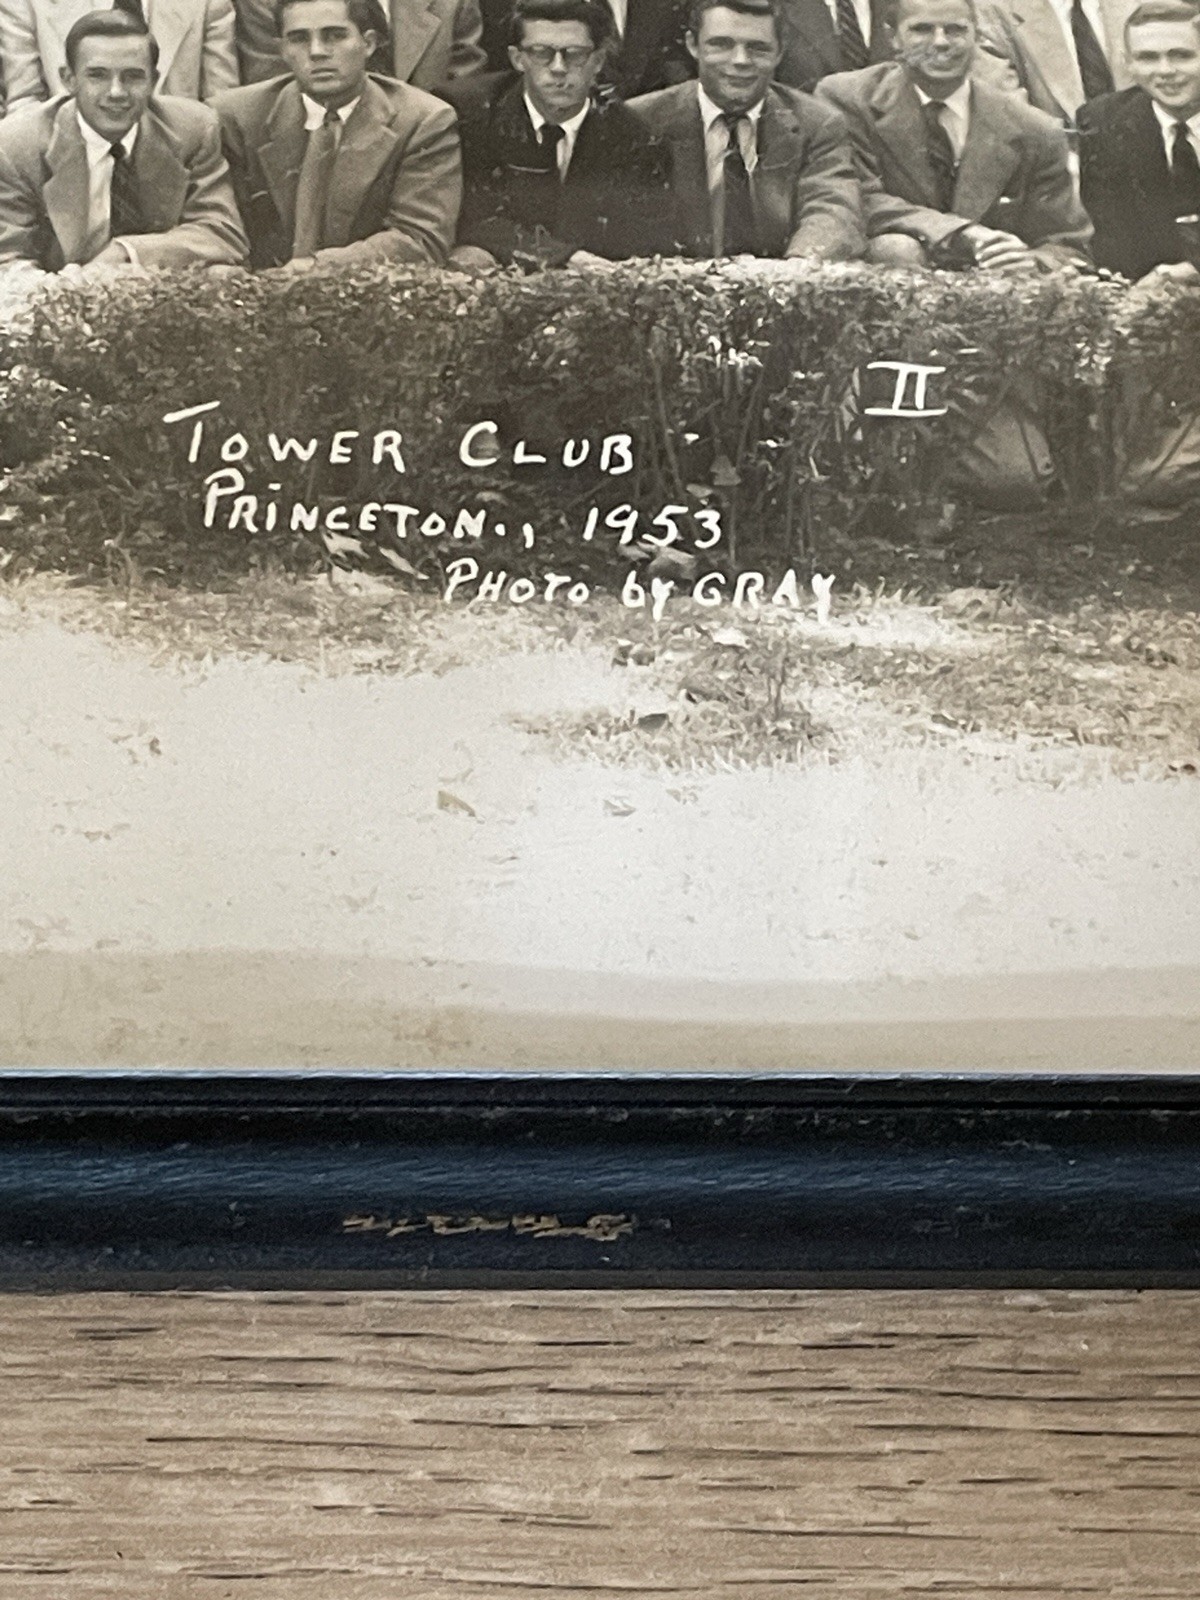 II
TOWER CLUB
PRINCETON., 1953
PHOTO by GRAY